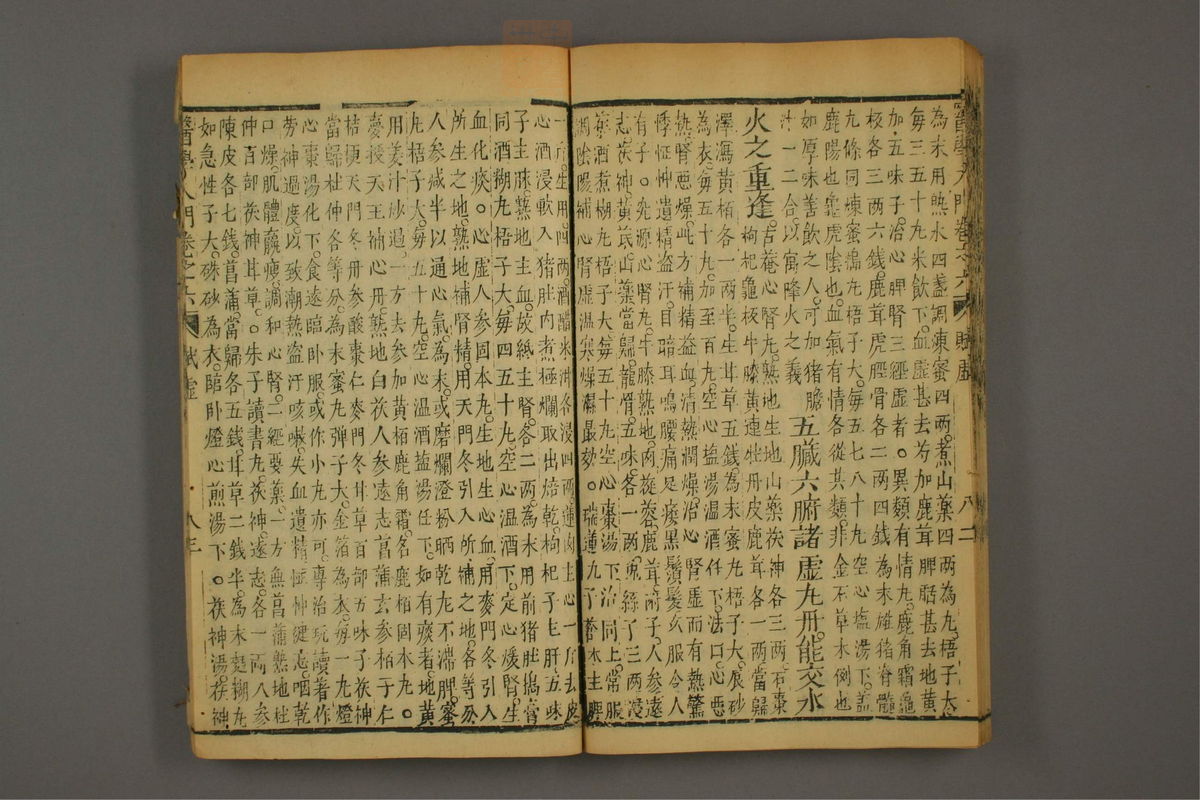 為末用熟水四盞調煉蜜四兩煮山藥四兩為丸梧子大
每三五十丸米飲下血虛甚去芍加鹿茸脾脂甚去地黃
加五味子治心脾腎三經虛者異類有情丸鹿角霜龜
板各三兩六錢鹿茸虎脛骨各二兩四錢為末雄猪脊髓
九條同煉蜜搗丸梧子大每五七八十丸空心塩湯下蓋
鹿陽也龜虎陰也血氣有情各從其類非金石草木例也
如厚味善飲之人可加猪膽
汁一二合以寓降火之義
五臟六腑諸虛丸丹能交水
火之重逢
古菴心腎丸熟地生地山藥茯神各三兩
枸杞龜板牛膝黃連牡丹皮鹿茸各一兩當歸
澤瀉黃栢各一兩半生甘草五錢為末蜜丸梧子大
為衣每五十丸加至百丸空心塩湯温酒任下法曰心
熱腎惡燥此方補精益血清熱潤燥治心腎虛而有熱驚
悸怔忡遺精盜汗目暗耳鳴腰痛足痿黑鬚髮久服令人
有子究源心腎丸牛膝熟地肉蓯蓉鹿茸附子人參遠
志茯神黃芪山藥當歸龍骨五味各一兩兎絲子三兩浸
藥酒煮糊丸梧子大每五十丸空心棗湯下治同上常服
調陰陽補心腎虛温寒燥濕最效瑞蓮丸
一斤生用四兩酒醋米各浸四兩蓮肉主心一斤去皮
心酒浸軟入猪肚內煮極爛取出焙乾枸杞子主肝五味
子主脉熟地主血故紙主腎各二兩為末用前猪肚搗膏
同酒糊丸梧子大每四五十丸空心温酒下定心煖腎生
血化痰心虛人參固本丸生地生心血用麥門冬引入
所生之地熟地補腎精用天門冬引入所補之地各等分
人參減半以通心氣為末或磨爛澄粉晒乾丸不滯脾蜜
丸梧子大每五十丸空心温酒塩湯任下如有痰者地黃
用姜汁炒過一方去參加黃栢鹿角霜名鹿栢固本丸
夢授天王補心丹熟地白茯人參遠志菖蒲玄參栢子仁
桔梗天門冬丹參酸棗仁麥門冬甘草百部五味子茯神
當歸杜仲各等分為末蜜丸彈子大金箔為衣每一丸燈
心棗湯化下食遠臨卧服或作小丸亦可專治玩讀著作
勞神過度以致潮熱盜汗咳嗽失血遺精怔忡健忘咽乾
口燥肌體羸瘦調和心腎二經要藥一方無菖蒲熟地杜
仲百部茯神甘草朱子讀書丸茯神遠志各一兩人參
陳皮各七錢菖蒲當歸各五錢甘草二錢半為末麪糊丸
如急性子大硃砂為衣臨卧燈心煎湯下茯神湯茯神
醫學入門卷之六 臟虛 八三